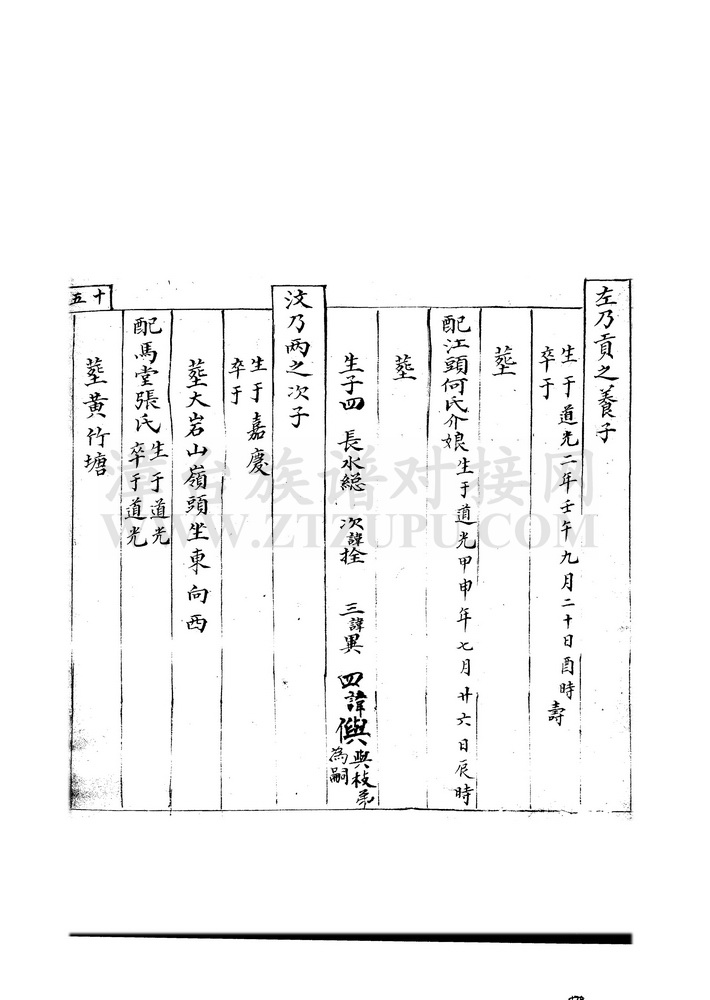 左乃貢之養子
生于道光二年壬午九月二十日酉時 壽
卒于
塟
配江頭何氏介娘生于道光甲申年七月廿六日辰時
塟
生子四 長水総 次諱拴 三諱異 四諱㒜與枝弟為嗣
汶乃兩之次子
生于嘉慶
卒于
塟大岩山嶺頭坐東向西
配馬堂張氏生于道光
卒于道光
塟黄竹塘
十五
漳台族谱对接网
WWW.ZTZUPU.COM